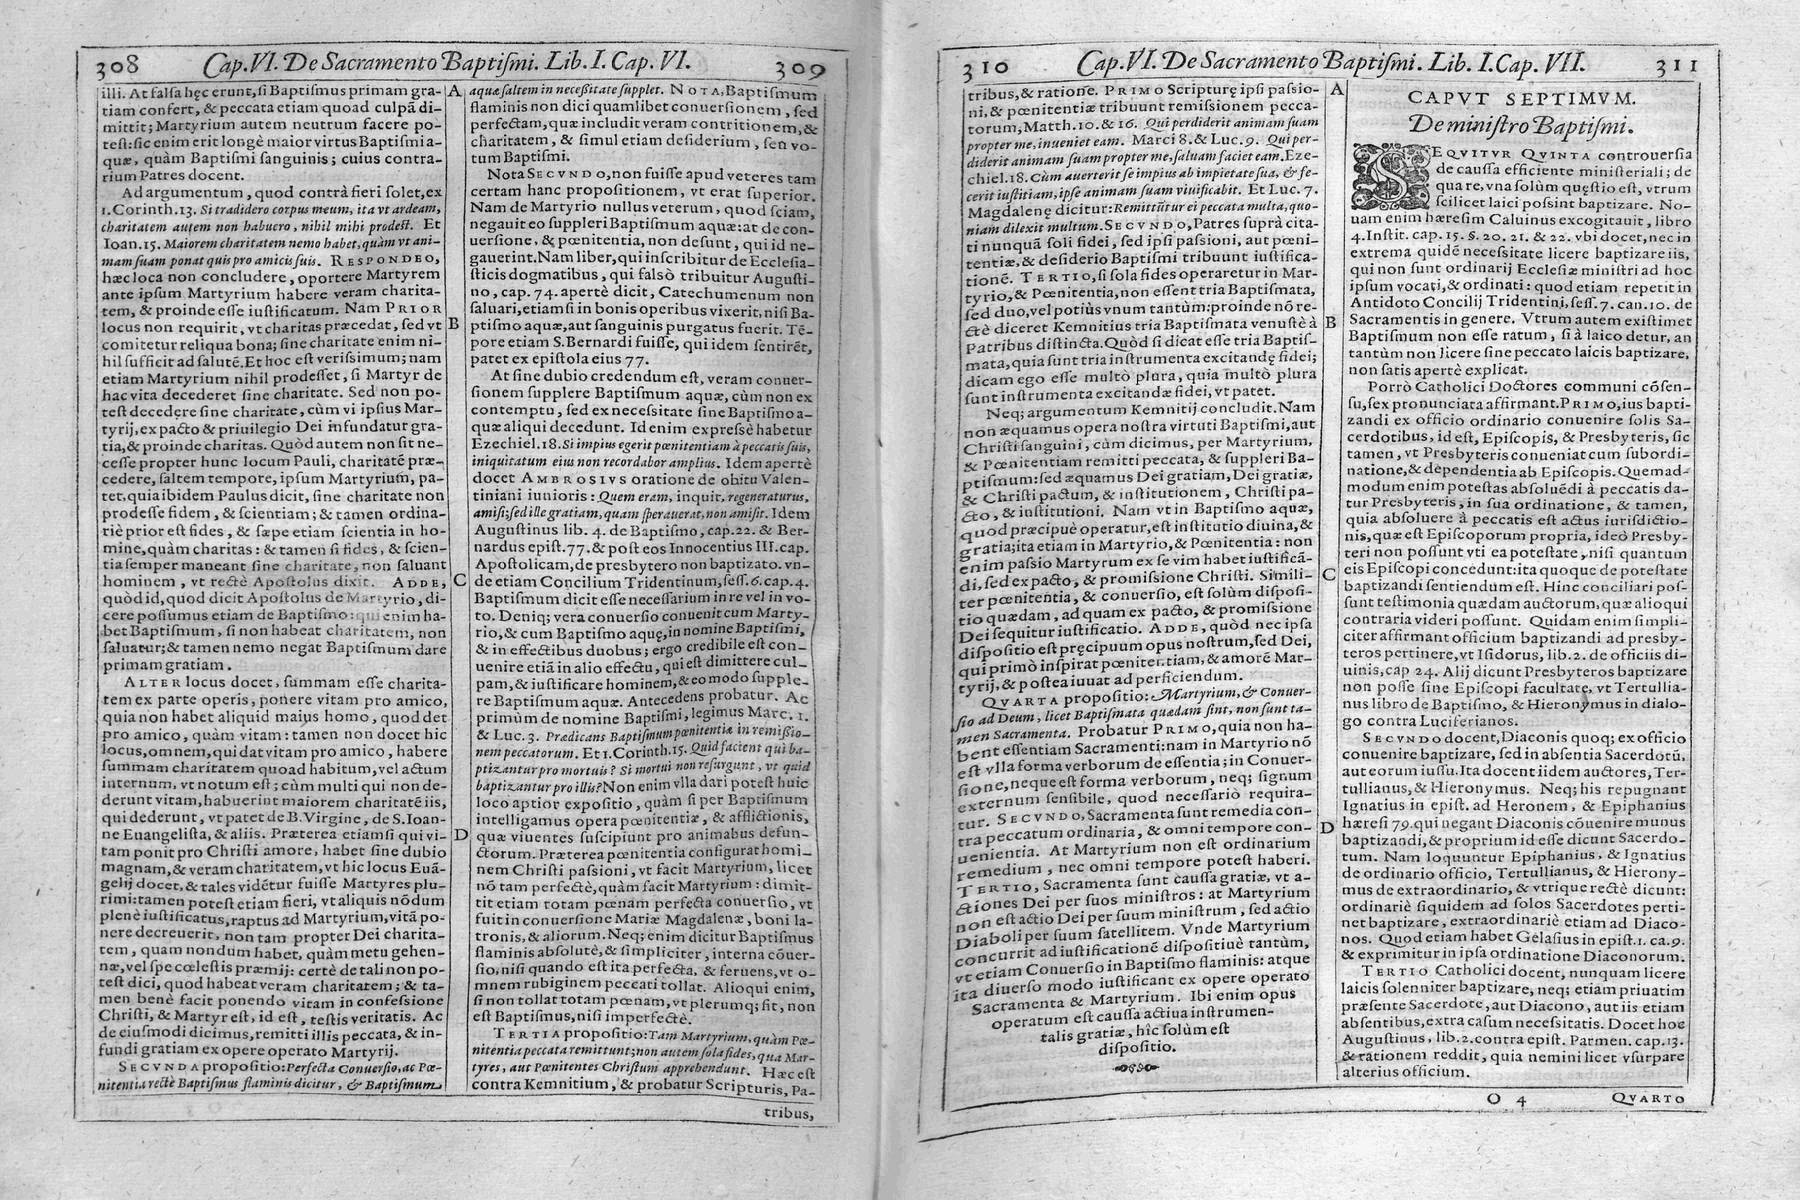 308 Cap. VI. De Sacramento Baptiſmi. Lib. I. Cap. VI. 309
illi. At falſa hęc erunt, ſi Baptiſmus primam gra-
tiam confert, & peccata etiam quoad culpā di-
mittit; Martyrium autem neutrum facere po-
teſt: ſic enim erit longè maior virtus Baptiſmi a-
quæ, quàm Baptiſmi ſanguinis; cuius contra-
rium Patres docent.
Ad argumentum, quod contrà fieri ſolet, ex
1. Corinth. 13. Si tradidero corpus meum, ita vt ardeam,
charitatem autem non habuero, nihil mihi prodeſt. Et
Ioan. 15. Maiorem charitatem nemo habet, quàm vt ani-
mam ſuam ponat quis pro amicis ſuis. RESPONDEO,
hæc loca non concludere, oportere Martyrem
ante ipſum Martyrium habere veram charita-
tem, & proinde eſſe iuſtificatum. Nam PRIOR
locus non requirit, vt charitas præcedat, ſed vt
comitetur reliqua bona; ſine charitate enim ni-
hil ſufficit ad ſalutē. Et hoc eſt veriſſimum; nam
etiam Martyrium nihil prodeſſet, ſi Martyr de
hac vita decederet ſine charitate. Sed non po-
teſt decedere ſine charitate, cùm vi ipſius Mar-
tyrij, ex pacto & priuilegio Dei infundatur gra-
tia, & proinde charitas. Quòd autem non ſit ne-
ceſſe propter hunc locum Pauli, charitatē præ-
cedere, ſaltem tempore, ipſum Martyrium, pa-
tet, quia ibidem Paulus dicit, ſine charitate non
prodeſſe fidem, & ſcientiam; & tamen ordina-
riè prior eſt fides, & ſæpe etiam ſcientia in ho-
mine, quàm charitas: & tamen ſi fides, & ſcien-
tia ſemper maneant ſine charitate, non ſaluant
hominem, vt rectè Apoſtolus dixit. ADDE,
quòd id, quod dicit Apoſtolus de Martyrio, di-
cere poſſumus etiam de Baptiſmo: qui enim ha-
bet Baptiſmum, ſi non habeat charitatem, non
ſaluatur; & tamen nemo negat Baptiſmum dare
primam gratiam.
ALTER locus docet, ſummam eſſe charita-
tem ex parte operis, ponere vitam pro amico,
quia non habet aliquid maius homo, quod det
pro amico, quàm vitam: tamen non docet hic
locus, omnem, qui dat vitam pro amico, habere
ſummam charitatem quoad habitum, vel actum
internum, vt notum eſt; cùm multi qui non de-
derunt vitam, habuerint maiorem charitatē iis,
qui dederunt, vt patet de B. Virgine, de S. Ioan-
ne Euangeliſta, & aliis. Præterea etiamſi qui vi-
tam ponit pro Chriſti amore, habet ſine dubio
magnam, & veram charitatem, vt hic locus Euā-
gelij docet, & tales vidētur fuiſſe Martyres plu-
rimi: tamen poteſt etiam fieri, vt aliquis nōdum
plenè iuſtificatus, raptus ad Martyrium, vitā po-
nere decreuerit, non tam propter Dei charita-
tem, quam nondum habet, quàm metu gehen-
næ, vel ſpe cœleſtis præmij: certè de tali non po-
teſt dici, quod habeat veram charitatem; & ta-
men benè facit ponendo vitam in confeſſione
Chriſti, & Martyr eſt, id eſt, teſtis veritatis. Ac
de eiuſmodi dicimus, remitti illis peccata, & in-
fundi gratiam ex opere operato Martyrij.
SECVNDA propoſitio: Perfecta Conuerſio, ac Pœ-
nitentia rectè Baptiſmus flaminis dicitur, & Baptiſmum
A
B
C
D
aquæ ſaltem in neceſſitate ſupplet. NOTA, Baptiſmum
flaminis non dici quamlibet conuerſionem, ſed
perfectam, quæ includit veram contritionem, &
charitatem, & ſimul etiam deſiderium, ſeu vo-
tum Baptiſmi.
Nota SECVNDO, non fuiſſe apud veteres tam
certam hanc propoſitionem, vt erat ſuperior.
Nam de Martyrio nullus veterum, quod ſciam,
negauit eo ſuppleri Baptiſmum aquæ: at de con-
uerſione, & pœnitentia, non deſunt, qui id ne-
gauerint. Nam liber, qui inſcribitur de Eccleſia-
ſticis dogmatibus, qui falsò tribuitur Auguſti-
no, cap. 74. apertè dicit, Catechumenum non
ſaluari, etiamſi in bonis operibus vixerit, niſi Ba-
ptiſmo aquæ, aut ſanguinis purgatus fuerit. Tē-
pore etiam S. Bernardi fuiſſe, qui idem ſentirēt,
patet ex epiſtola eius 77.
At ſine dubio credendum eſt, veram conuer-
ſionem ſupplere Baptiſmum aquæ, cùm non ex
contemptu, ſed ex neceſſitate ſine Baptiſmo a-
quæ aliqui decedunt. Id enim expreſſè habetur
Ezechiel. 18. Si impius egerit pœnitentiam à peccatis ſuis,
iniquitatum eius non recordabor amplius. Idem apertè
docet AMBROSIVS oratione de obitu Valen-
tiniani iunioris: Quem eram, inquit, regeneraturus,
amiſi; ſed ille gratiam, quam ſperauerat, non amiſit. Idem
Auguſtinus lib. 4. de Baptiſmo, cap. 22. & Ber-
nardus epiſt. 77. & poſt eos Innocentius III. cap.
Apoſtolicam, de presbytero non baptizato. vn-
de etiam Concilium Tridentinum, ſeſſ. 6. cap. 4.
Baptiſmum dicit eſſe neceſſarium in re vel in vo-
to. Deniq; vera conuerſio conuenit cum Marty-
rio, & cum Baptiſmo aquę, in nomine Baptiſmi,
& in effectibus duobus; ergo credibile eſt con-
uenire etiā in alio effectu, qui eſt dimittere cul-
pam, & iuſtificare hominem, & eo modo ſupple-
re Baptiſmum aquæ. Antecedens probatur. Ac
primùm de nomine Baptiſmi, legimus Marc. 1.
& Luc. 3. Prædicans Baptiſmum pœnitentiæ in remiſſio-
nem peccatorum. Et 1. Corinth. 15. Quid facient qui ba-
ptizantur pro mortuis? Si mortui non reſurgunt, vt quid
baptizantur pro illis? Non enim vlla dari poteſt huic
loco aptior expoſitio, quàm ſi per Baptiſmum
intelligamus opera pœnitentiæ, & afflictionis,
quæ viuentes ſuſcipiunt pro animabus defun-
ctorum. Præterea pœnitentia configurat homi-
nem Chriſti paſſioni, vt facit Martyrium, licet
nō tam perfectè, quàm facit Martyrium: dimit-
tit etiam totam pœnam perfecta conuerſio, vt
fuit in conuerſione Mariæ Magdalenæ, boni la-
tronis, & aliorum. Neq; enim dicitur Baptiſmus
flaminis abſolutè, & ſimpliciter, interna cōuer-
ſio, niſi quando eſt ita perfecta, & feruens, vt o-
mnem rubiginem peccati tollat. Alioqui enim,
ſi non tollat totam pœnam, vt plerumq; fit, non
eſt Baptiſmus, niſi imperfectè.
TERTIA propoſitio: Tam Martyrium, quàm Pœ-
nitentia peccata remittunt; non autem ſola fides, qua Mar-
tyres, aut Pœnitentes Chriſtum apprehendunt. Hæc eſt
contra Kemnitium, & probatur Scripturis, Pa-
tribus,
310 Cap. VI. De Sacramento Baptiſmi. Lib. I. Cap. VII. 311
tribus, & ratione. PRIMO Scripturę ipſi paſſio-
ni, & pœnitentiæ tribuunt remiſſionem pecca-
torum, Matth. 10. & 16. Qui perdiderit animam ſuam
propter me, inueniet eam. Marci 8. & Luc. 9. Qui per-
diderit animam ſuam propter me, ſaluam faciet eam. Eze-
chiel. 18. Cùm auerterit ſe impius ab impietate ſua, & fe-
cerit iuſtitiam, ipſe animam ſuam viuificabit. Et Luc. 7.
Magdalenę dicitur: Remittūtur ei peccata multa, quo-
niam dilexit multum. SECVNDO, Patres ſuprà cita-
ti nunquā ſoli fidei, ſed ipſi paſſioni, aut pœni-
tentiæ, & deſiderio Baptiſmi tribuunt iuſtifica-
tionē. TERTIO, ſi ſola fides operaretur in Mar-
tyrio, & Pœnitentia, non eſſent tria Baptiſmata,
ſed duo, vel potiùs vnum tantùm: proinde nō re-
ctè diceret Kemnitius tria Baptiſmata venuſtè à
Patribus diſtincta. Quòd ſi dicat eſſe tria Baptiſ-
mata, quia ſunt tria inſtrumenta excitandę fidei;
dicam ego eſſe multò plura, quia multò plura
ſunt inſtrumenta excitandæ fidei, vt patet.
Neq; argumentum Kemnitij concludit. Nam
non æquamus opera noſtra virtuti Baptiſmi, aut
Chriſti ſanguini, cùm dicimus, per Martyrium,
& Pœnitentiam remitti peccata, & ſuppleri Ba-
ptiſmum: ſed æquamus Dei gratiam, Dei gratiæ,
& Chriſti pactum, & inſtitutionem, Chriſti pa-
cto, & inſtitutioni. Nam vt in Baptiſmo aquæ,
quod præcipuè operatur, eſt inſtitutio diuina, &
gratia; ita etiam in Martyrio, & Pœnitentia: non
enim paſſio Martyrum ex ſe vim habet iuſtificā-
di, ſed ex pacto, & promiſſione Chriſti. Simili-
ter pœnitentia, & conuerſio, eſt ſolùm diſpoſi-
tio quædam, ad quam ex pacto, & promiſſione
Dei ſequitur iuſtificatio. ADDE, quòd nec ipſa
diſpoſitio eſt pręcipuum opus noſtrum, ſed Dei,
qui primò inſpirat pœnitentiam, & amorē Mar-
tyrij, & poſtea iuuat ad perficiendum.
QVARTA propoſitio: Martyrium, & Conuer-
ſio ad Deum, licet Baptiſmata quædam ſint, non ſunt ta-
men Sacramenta. Probatur PRIMO, quia non ha-
bent eſſentiam Sacramenti: nam in Martyrio nō
eſt vlla forma verborum de eſſentia; in Conuer-
ſione, neque eſt forma verborum, neq; ſignum
externum ſenſibile, quod neceſſariò requira-
tur. SECVNDO, Sacramenta ſunt remedia con-
tra peccatum ordinaria, & omni tempore con-
uenientia. At Martyrium non eſt ordinarium
remedium, nec omni tempore poteſt haberi.
TERTIO, Sacramenta ſunt cauſſa gratiæ, vt a-
ctiones Dei per ſuos miniſtros: at Martyrium
non eſt actio Dei per ſuum miniſtrum, ſed actio
Diaboli per ſuum ſatellitem. Vnde Martyrium
concurrit ad iuſtificationē diſpoſitiuè tantùm,
vt etiam Conuerſio in Baptiſmo flaminis: atque
ita diuerſo modo iuſtificant ex opere operato
Sacramenta & Martyrium. Ibi enim opus
operatum eſt cauſſa actiua inſtrumen-
talis gratiæ, hîc ſolùm eſt
diſpoſitio.
A
B
C
D
CAPVT SEPTIMVM.
De miniſtro Baptiſmi.
SEQVITVR QVINTA controuerſia
de cauſſa efficiente miniſteriali; de
qua re, vna ſolùm quęſtio eſt, vtrum
ſcilicet laici poſſint baptizare. No-
uam enim hæreſim Caluinus excogitauit, libro
4. Inſtit. cap. 15. §. 20. 21. & 22. vbi docet, nec in
extrema quidē neceſſitate licere baptizare iis,
qui non ſunt ordinarij Eccleſiæ miniſtri ad hoc
ipſum vocati, & ordinati: quod etiam repetit in
Antidoto Concilij Tridentini, ſeſſ. 7. can. 10. de
Sacramentis in genere. Vtrum autem exiſtimet
Baptiſmum non eſſe ratum, ſi à laico detur, an
tantùm non licere ſine peccato laicis baptizare,
non ſatis apertè explicat.
Porrò Catholici Doctores communi cōſen-
ſu, ſex pronunciata affirmant. PRIMO, ius bapti-
zandi ex officio ordinario conuenire ſolis Sa-
cerdotibus, id eſt, Epiſcopis, & Presbyteris, ſic
tamen, vt Presbyteris conueniat cum ſubordi-
natione, & dependentia ab Epiſcopis. Quemad-
modum enim poteſtas abſoluēdi à peccatis da-
tur Presbyteris, in ſua ordinatione, & tamen,
quia abſoluere à peccatis eſt actus iuriſdictio-
nis, quæ eſt Epiſcoporum propria, ideò Presby-
teri non poſſunt vti ea poteſtate, niſi quantum
eis Epiſcopi concedunt: ita quoque de poteſtate
baptizandi ſentiendum eſt. Hinc conciliari poſ-
ſunt teſtimonia quædam auctorum, quæ alioqui
contraria videri poſſunt. Quidam enim ſimpli-
citer affirmant officium baptizandi ad presby-
teros pertinere, vt Iſidorus, lib. 2. de officiis di-
uinis, cap 24. Alij dicunt Presbyteros baptizare
non poſſe ſine Epiſcopi facultate, vt Tertullia-
nus libro de Baptiſmo, & Hieronymus in dialo-
go contra Luciferianos.
SECVNDO docent, Diaconis quoq; ex officio
conuenire baptizare, ſed in abſentia Sacerdotū,
aut eorum iuſſu. Ita docent iidem auctores, Ter-
tullianus, & Hieronymus. Neq; his repugnant
Ignatius in epiſt. ad Heronem, & Epiphanius
hæreſi 79. qui negant Diaconis cōuenire munus
baptizandi, & proprium id eſſe dicunt Sacerdo-
tum. Nam loquuntur Epiphanius, & Ignatius
de ordinario officio, Tertullianus, & Hierony-
mus de extraordinario, & vtrique rectè dicunt:
ordinariè ſiquidem ad ſolos Sacerdotes perti-
net baptizare, extraordinariè etiam ad Diaco-
nos. Quod etiam habet Gelaſius in epiſt. 1. ca. 9.
& exprimitur in ipſa ordinatione Diaconorum.
TERTIO Catholici docent, nunquam licere
laicis ſolenniter baptizare, neq; etiam priuatim
præſente Sacerdote, aut Diacono, aut iis etiam
abſentibus, extra caſum neceſſitatis. Docet hoc
Auguſtinus, lib. 2. contra epiſt. Parmen. cap. 13.
& rationem reddit, quia nemini licet vſurpare
alterius officium.
O 4 QVARTO